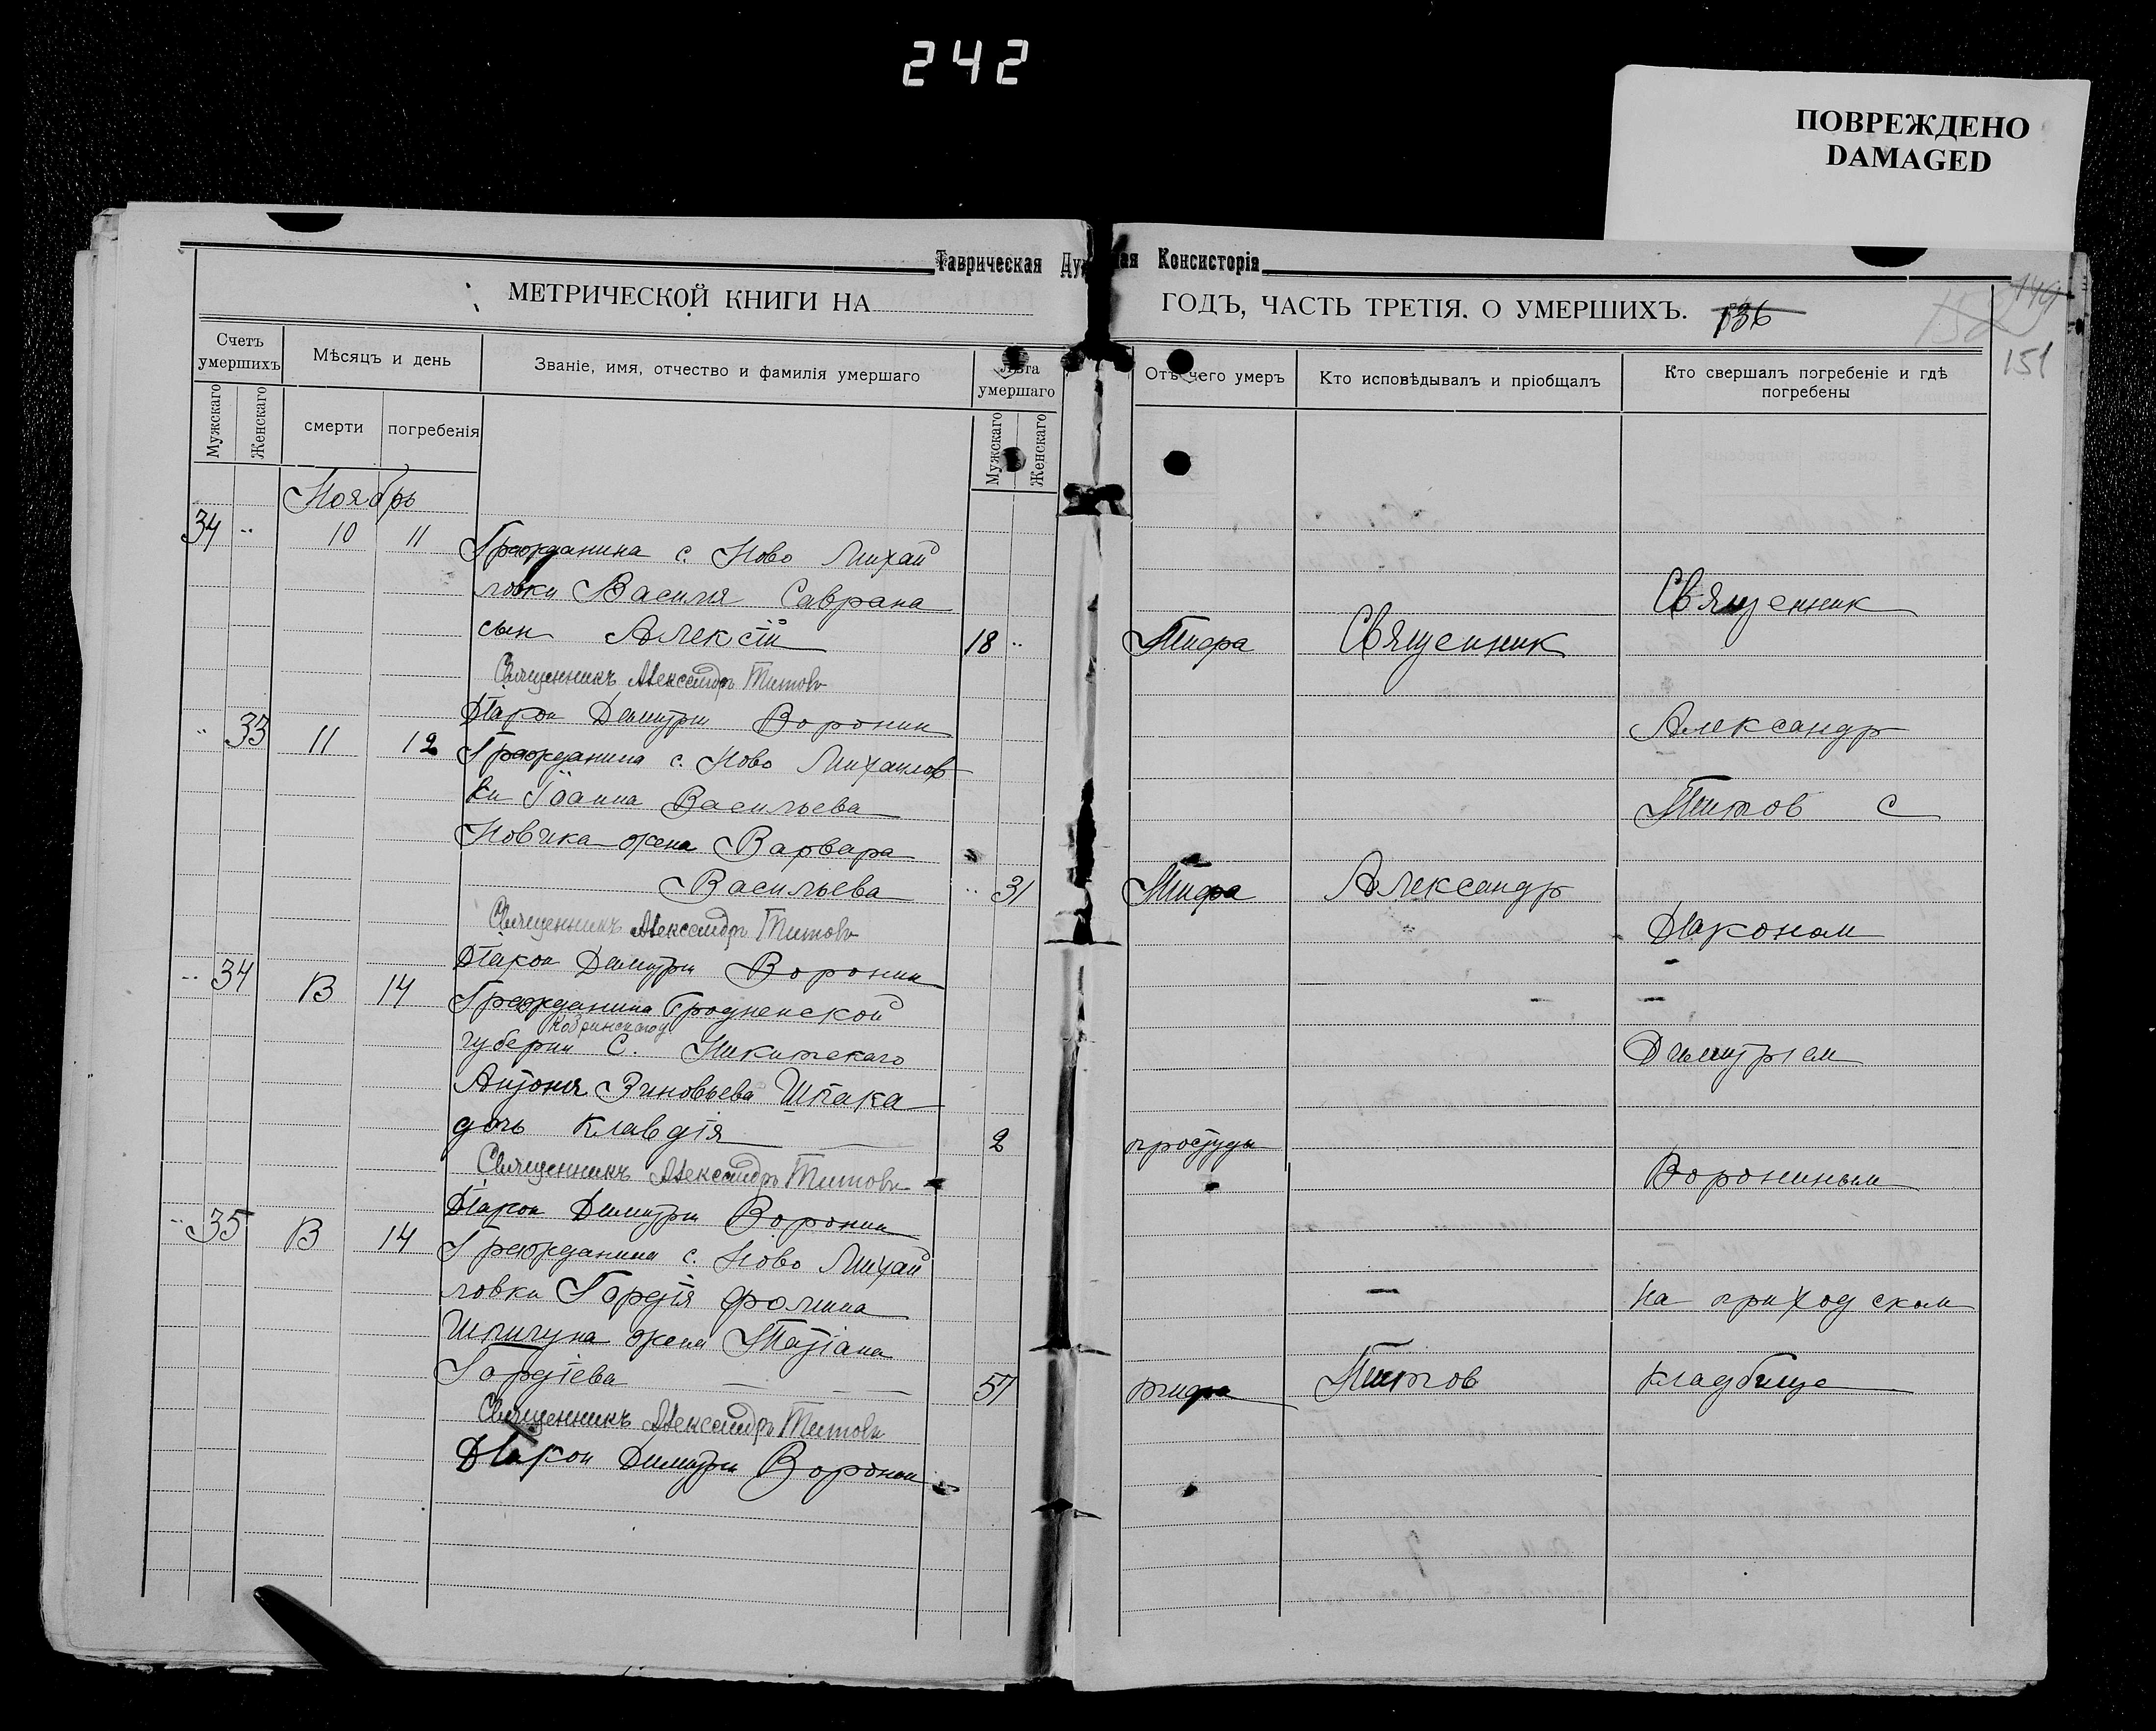 242
ПОВРЕЖДЕНО
DAMAGED
Таврическая Духовная Консисторія
МЕТРИЧЕСКОЙ КНИГИ НА
ГОДЪ, ЧАСТЬ ТРЕТІЯ. О УМЕРШИХЪ.
136
149
151
Счетъ умершихъ
Мѣсяцъ и день
Званіе, имя, отчество и фамилія умершаго
Лѣта умершаго
Отъ чего умеръ
Кто исповѣдывалъ и пріобщалъ
Кто свершалъ погребеніе и гдѣ погребены
Мужскаго
Женскаго
смерти
погребенія
Мужскаго
Женскаго
Ноябрь
34 .. 10 11 Гражданина с. Ново Михай
ловки Василія Саврана
сын Алексѣй 18 .. Тифа Священник
Священникъ Александръ Титовъ
Діакон Димитрій Воронин
.. 33 11 12 Гражданина с. Ново Михайлов
ки Іоанна Васильева
Новака жена Варвара
Васильева .. 31 Тифа Александр
Священникъ Александръ Титовъ
Діакон Димитрій Воронин
.. 34 13 14 Гражданина Гродненской
Кобринскаго у
губерніи с. Никитскаго
Антонія Зиновьева Шпака
дочь Клавдія 2 простуды
Священникъ Александръ Титовъ
Діакон Димитрій Воронин
.. 35 13 14 Гражданина с. Ново Михай
ловки Гордія Фомина
Шпигуна жена Татіана
Гордіева 57 тифа Титов
Священникъ Александръ Титовъ
Діакон Димитрій Воронин
Священник
Александр
Титов с
Діаконом
Димитріем
Ворониным
на приходском
кладбище